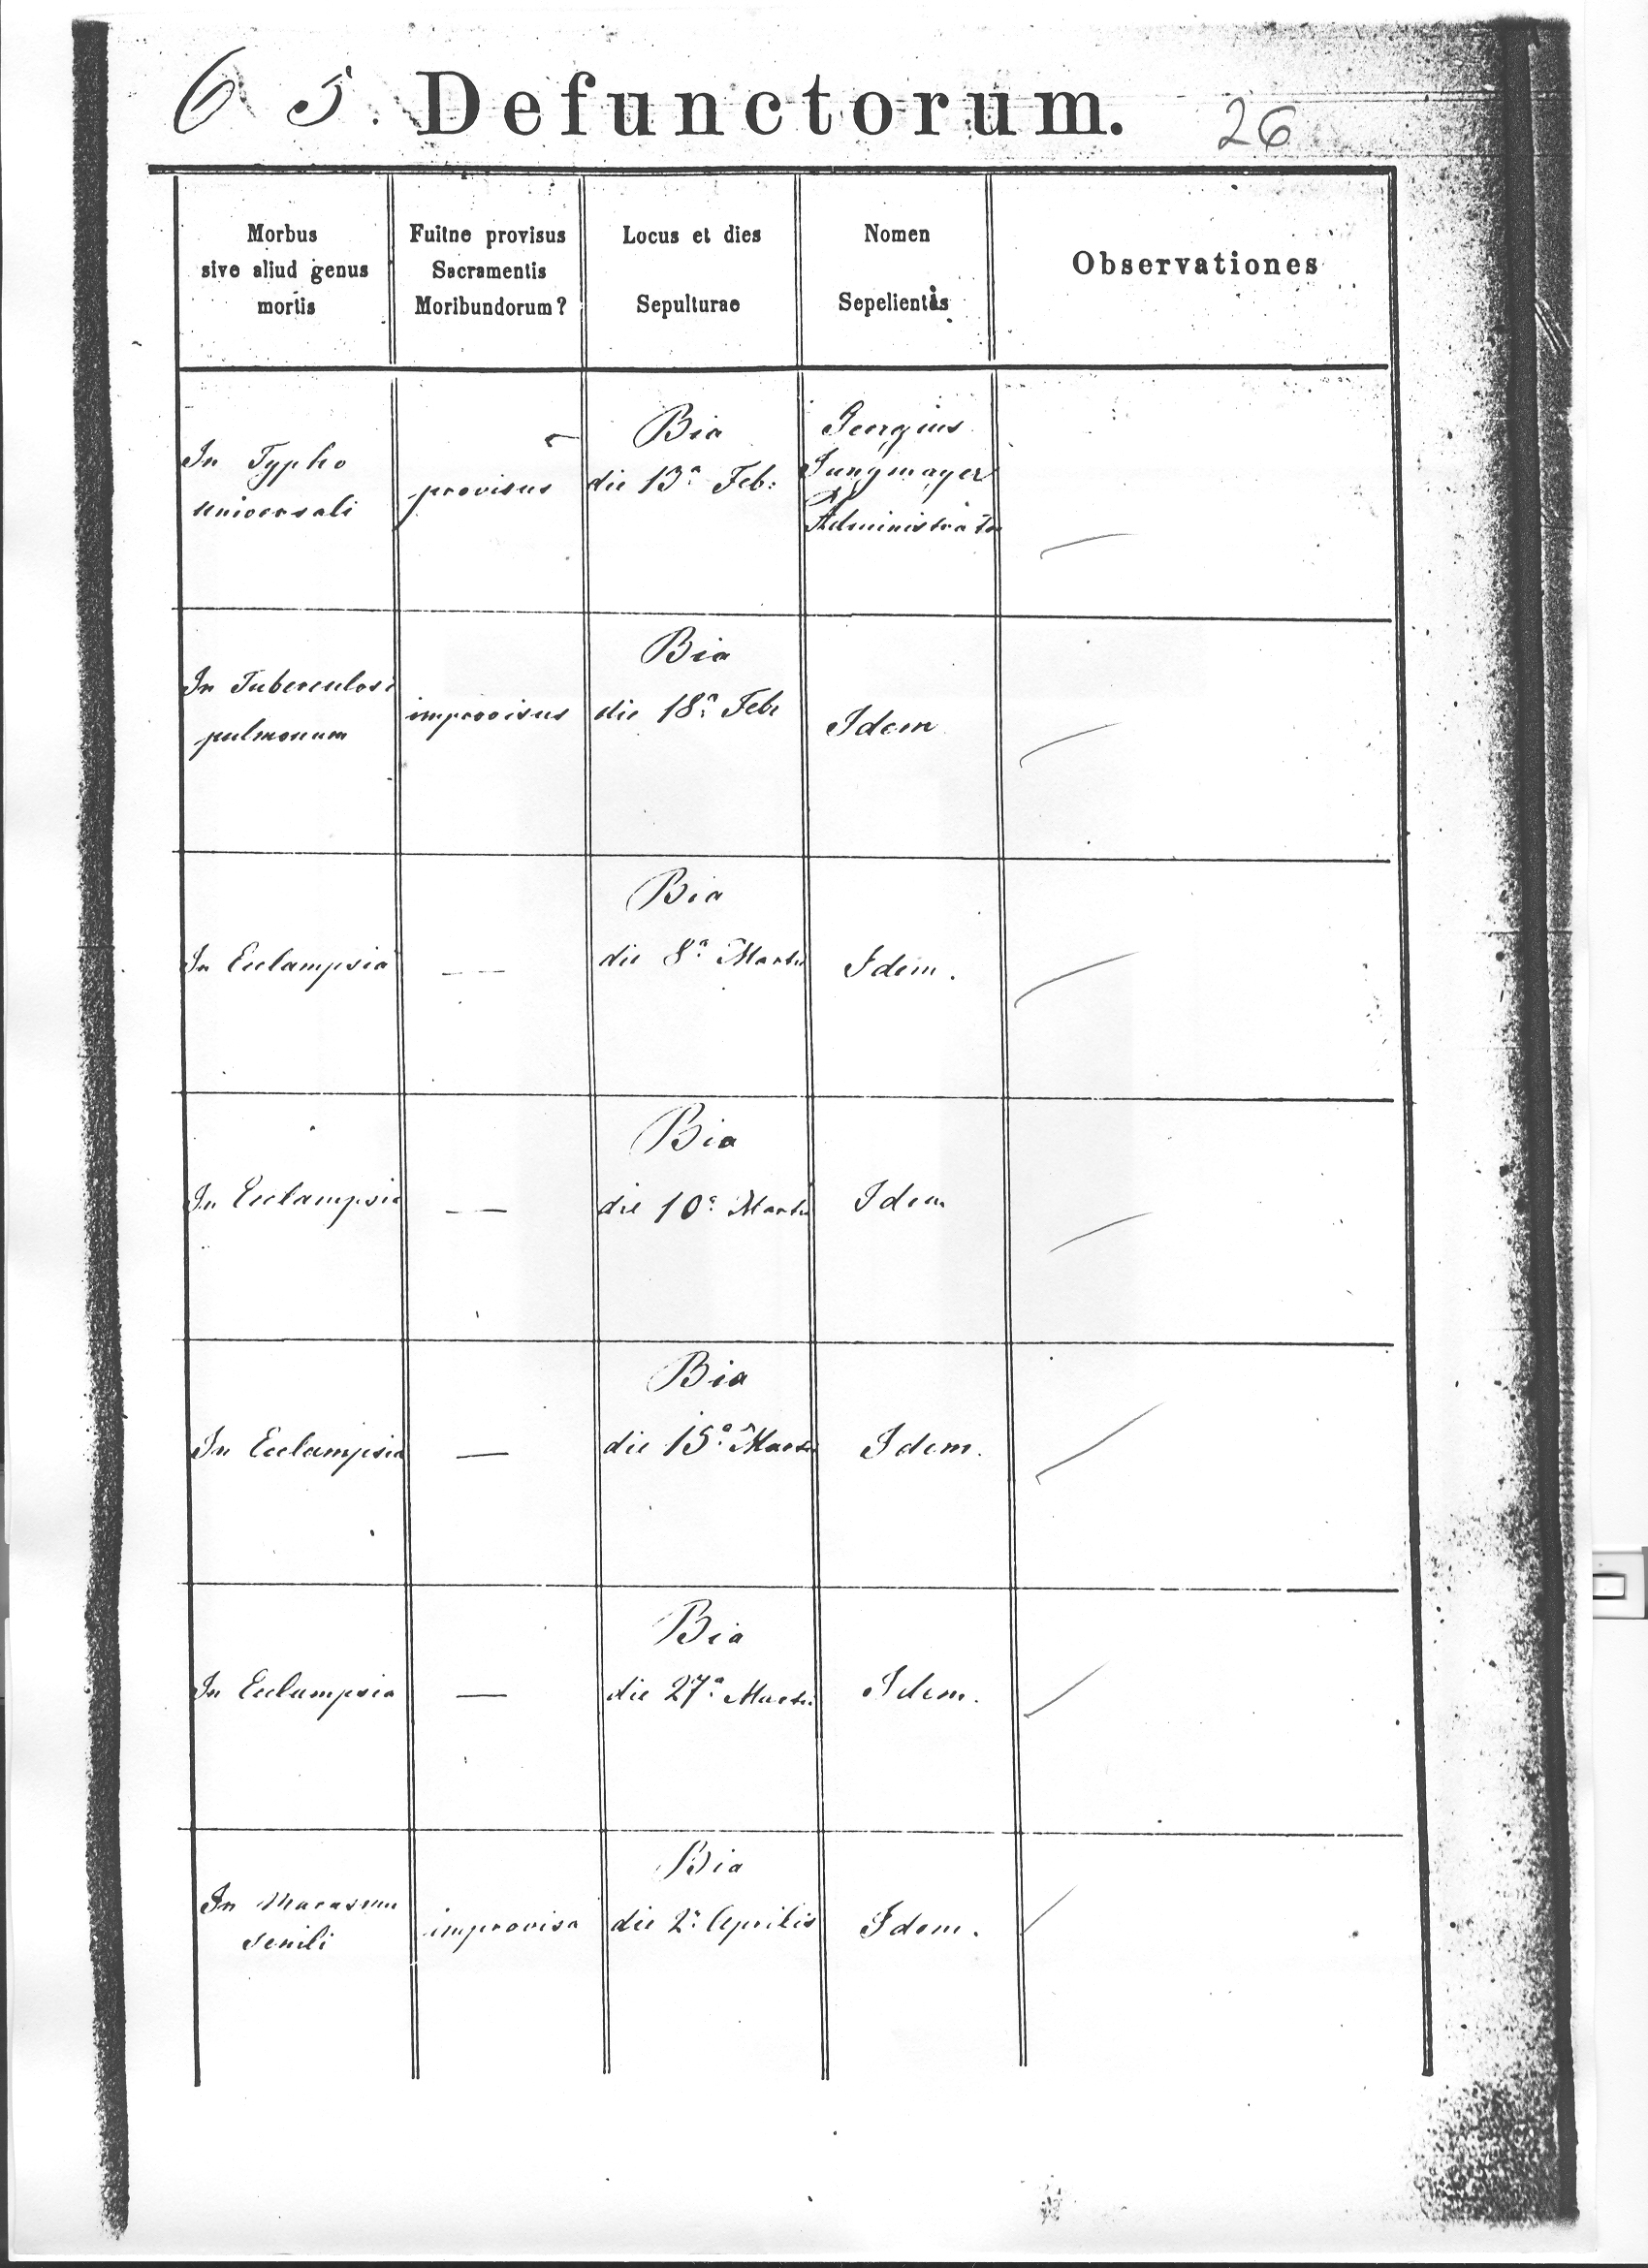 65. Defunctorum. 26
Morbus
sive aliud genus
mortis
Fuitne provisus
Sacramentis
Moribundorum?
Locus et dies
Sepulturae
Nomen
Sepelientis
Observationes
In Typho
universali
provisus
Bia
die 13a Feb:
Georgius
Jungmayer
Administrator
In Tuberculosi
pulmonum
improvisus
Bia
die 18a Febr
Idem
In Eclampsia
— —
Bia
die 8a Martii
Idem.
In Eclampsia
— —
Bia
die 10a Martii
Idem
In Eclampsia
—
Bia
die 15a Martii
Idem.
In Eclampsia
—
Bia
die 27a Martii
Idem.
In Marasmu
senili
improvisa
Bia
die 2a Aprilis
Idem.